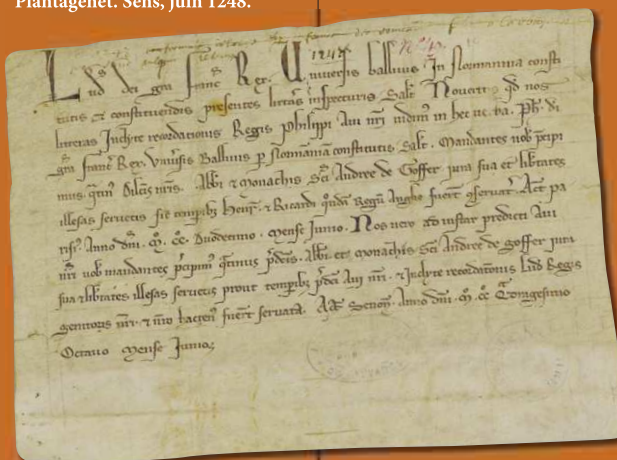 Plantagenêt. Sens, juin 1248.
1248
N° 13
Lud dei gra Franc Rex. Universis ballivis In Normannia consti
tutis et constituendis presentes litteras inspecturis Salt. Noveritis qd nos
litteras Inclyte recordationis Regis Philippi Avi nri vidim in hec verba. Ph. di
gra Franc Rex. Univsis Ballivis p Normannia constitutis Salt. Mandantes vob precipi
mus qtin dilcis nris. Abbi et Monachis Sci Andree de Goffer jura sua et libtates
illesas servetis sic tempibz Henr. et Ricardi qnda Regu Anglie fuert observat. Act pa
risi. Anno dni. M. CC. Duodecimo. Mense Junio. Nos vero ad instar predicti Avi
nri vob mandantes pcipim qtinus pdcis. Abbi et monachis Sci Andree de goffer jura
sua et libtates illesas servetis prout tempibz pdci Avi nri. et Inclyte recordationis Lud Regis
genitoris nri. et nro hacten fuert servata. Act Senon. Anno dni. M. CC. Qdragesimo
Octavo Mense Junio